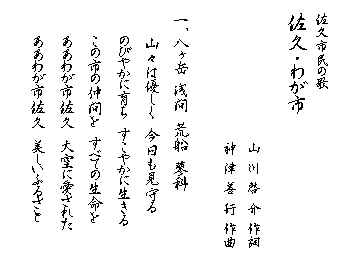 佐久市民の歌
佐久・わが市
山川啓介 作詞
神津善行 作曲
一、八ヶ岳 浅間 荒船 蓼科
山々は優しく 今日も見守る
のびやかに育ち すこやかに生きる
この市の仲間を すべての生命を
ああわが市佐久 大空に愛された
ああわが市佐久 美しいふるさと